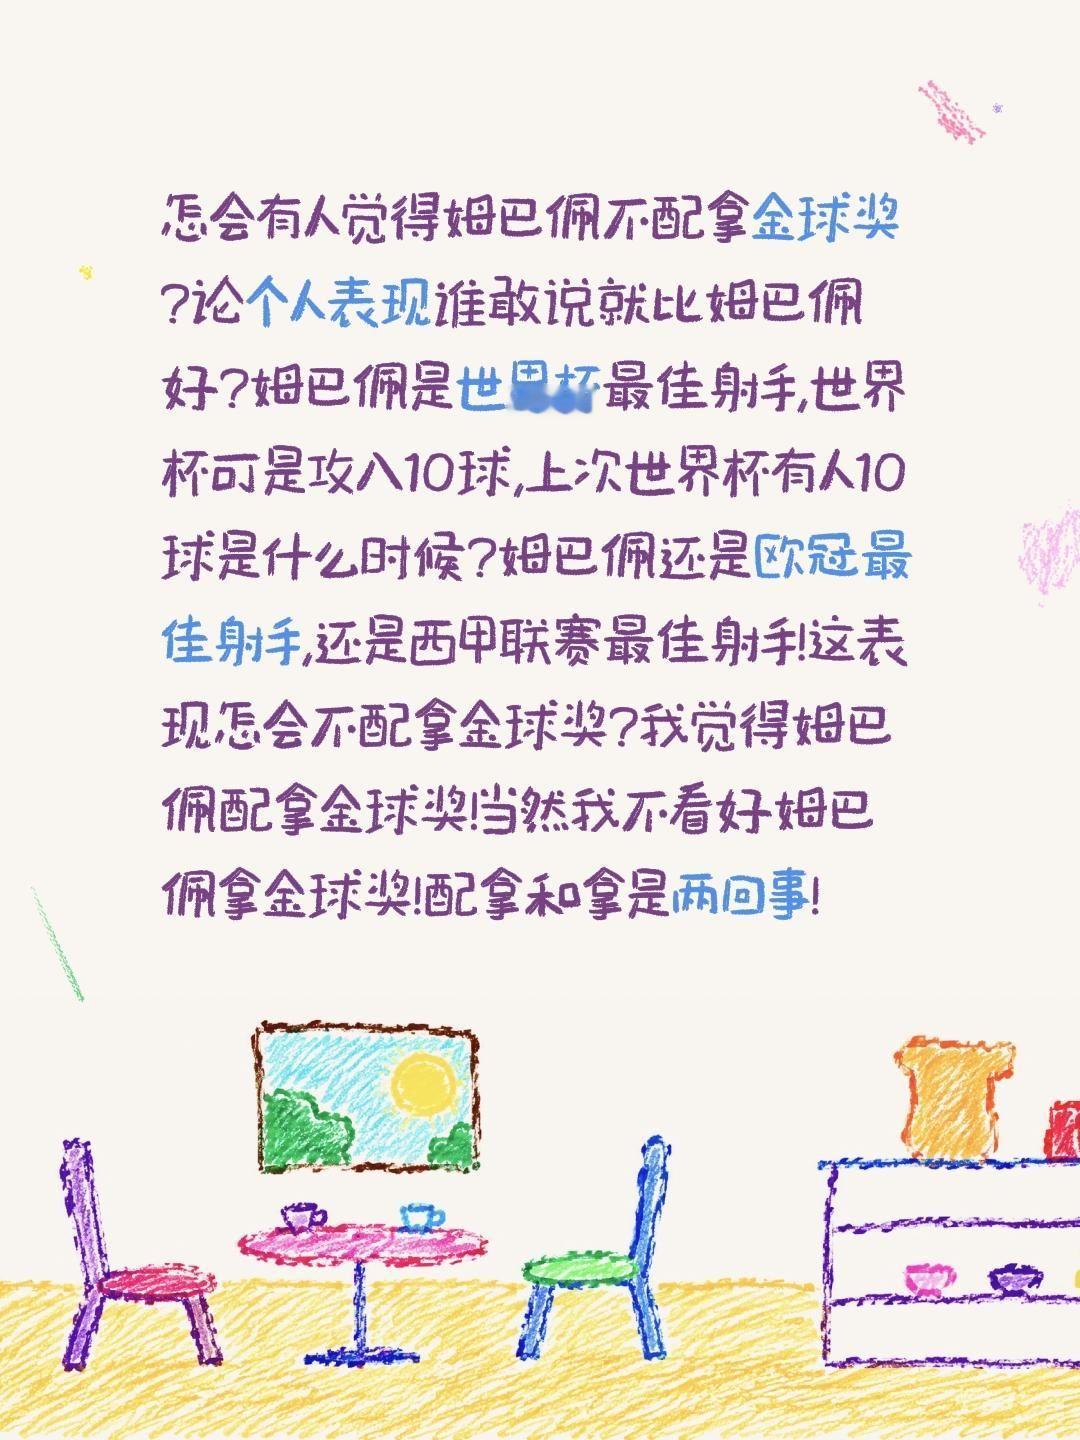 怎会有人觉得姆巴佩不配拿金球奖
?论个人表现谁敢说就比姆巴佩
好?姆巴佩是世界杯最佳射手,世界
杯可是攻入10球,上次世界杯有人10
球是什么时候?姆巴佩还是欧冠最
佳射手,还是西甲联赛最佳射手!这表
现怎会不配拿金球奖?我觉得姆巴
佩配拿金球奖!当然我不看好姆巴
佩拿金球奖!配拿和拿是两回事!